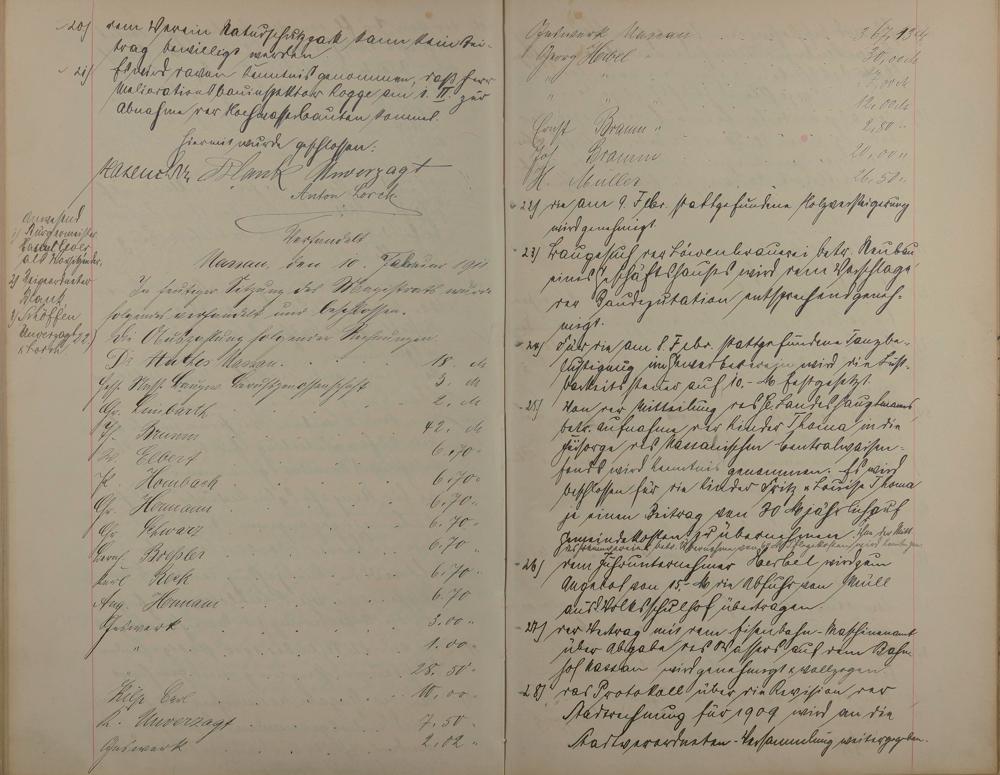 20) dem Verein Naturschutzpark kann kein Bei-
trag bewilligt werden.
21) Es wird davon Kenntnis genommen, daß Herr
Meliorationsbauinspektor Rogge am 1. II. zur
Abnahme der Hochwasserbauten kommt.
Hiermit wurde geschlossen:
Hasenclever Blank Unverzagt
Anton Lorch
Anwesend
1) Bürgermeister
Hasenclever
als Vorsitzender.
2) Beigeordneter
Blank
3) Schöffen
Unverzagt
u Lorch
Verhandelt
Nassau, den 10. Februar 1911
In heutiger Sitzung des Magistrats wurde
folgendes verhandelt und beschlossen.
22) die Auszahlung folgender Rechnungen
Dr Anthes Nassau. 18. M
Hess. Nass. Berufsgenossenschaft 3. M
Gg. Limbarth 2. M
Brumm 42. M
W. Elbert 6,70 "
Hombach 6,70 "
Hermann 6.70 "
Schwarz 6.70
6.70 "
Karl 6,70 "
Aug. Hermann 6.70
Gaswerk 3.00 "
" 1.00 "
28.50 "
10,00 "
Unverzagt 7.50 "
Gaswerk 2.02 "
Gaswerk Nassau
Georg Heibel 30,00 M
"
" 12.00 M
Ernst Bramm 2,80 "
Bramm 20,00 "
H. Müller 26.50 "
22) die am 9. Febr. stattgefundene Holzversteigerung
wird genehmigt
23) Baugesuch der Löwenbrauerei betr. Neubau
eines Geschäftshauses wird dem Vorschlage
der Baudeputation entsprechend geneh-
migt.
24) Für die am 8 Febr. stattgefundene Tanzbe-
lustigung im Gewerbeverein wird die Lust-
barkeitssteuer auf 10.- M festgesetzt.
25) Von der Mitteilung des H. Landeshauptmanns
betr. Aufnahme der Kinder Thoma in die
Fürsorge des Nassauischen Centralwaisen-
fonds wird Kenntnis genommen. Es wird
beschlossen für die Kinder Fritz u Louise Thoma
je einen Beitrag von 30 M jährlich auf
Gemeindekosten zu übernehmen.
26) dem Fuhrunternehmer Herbel wird zum
Angebot von 15.- M die Abfuhr von Müll
aus Volksschulhof übertragen.
27) der Vertrag mit dem Eisenbahn-Maschinenamt
über Abgabe des Wassers auf dem Bahn-
hof Nassau wird genehmigt u vollzogen
28) das Protokoll über die Revision der
Stadtrechnung für 1909 wird an die
Stadtverordneten-Versammlung weitergegeben.